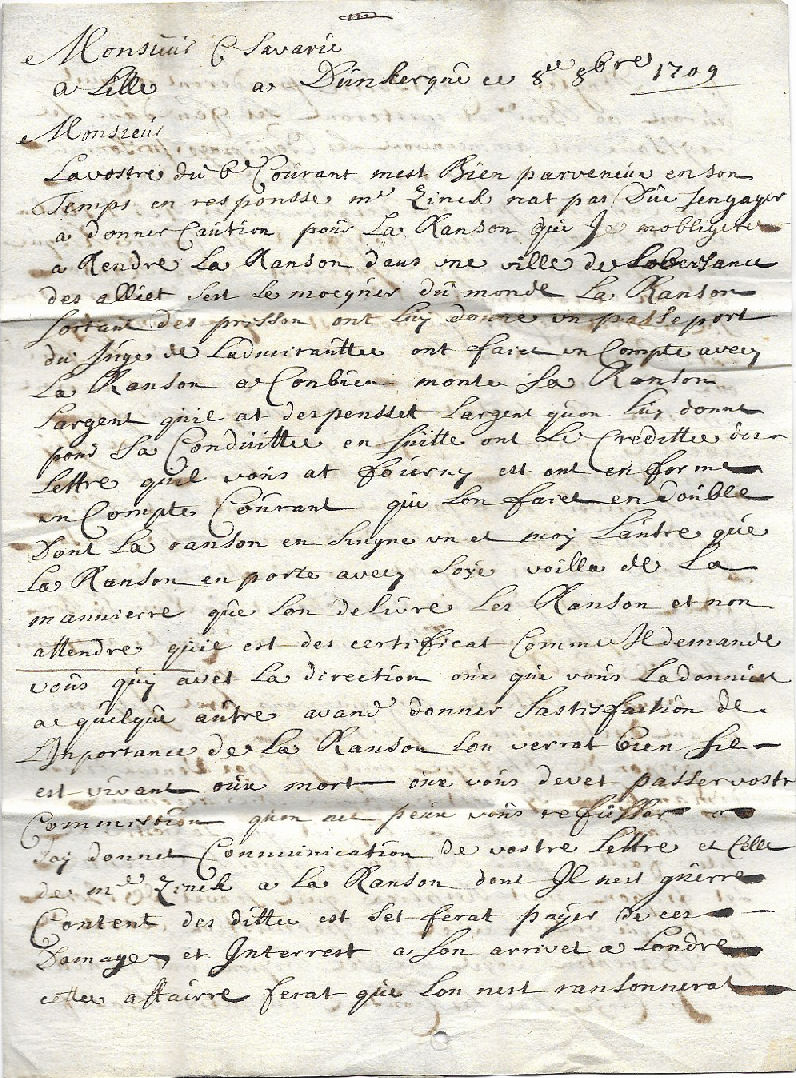 Monsieur C Savarie
a Lille a Dunkerque ce 8e 8bre 1709
Monsieur
La vostre du 6e Courant mest Bien parvenue en son
Temps en responsse mr Zinck nat pas Due sengager
a donner Caution pour La Ranson que Je mobligere
a Rendre La Ranson dans une ville de Lobeisance
des alliet sest se mocquer du monde La Ranson
sortant des presson ont luy donne un passeport
du Juge de Ladmirautte ont faict un Compte avecq
La Ranson a Conbien monte sa Ranson
Largent quil at despensset Largent quon luy donne
pour sa Conduitte en suitte ont le Creditte des
Lettre quil vous at fourny est ont en forme
un Compte Courant que Lon faict en double
Dont La ranson en singne un et moy Lautre que
La Ranson en porte avecq soye voilla de La
mannierre que Lon delivre Les Ranson et non
attendre quil est des certificat Comme Il demande
vous quy avet La direction oue que vous La donniet
a quelque autre avand donner sastisfaction de
Linportance de La Ranson Lon verrat bien sil
est vivant oue mort oue vous devet passer vostre
Commission quon ne peux vous refusser
Jay donnet Communication de vostre Lettre et Celle
de mr Zinck a La Ranson dont Il nest guerre
Content des ditte est set ferat payer de ces
Damage et Interrest a son arrivet a Londre
cette affairre ferat que Lon nest ransonnerat